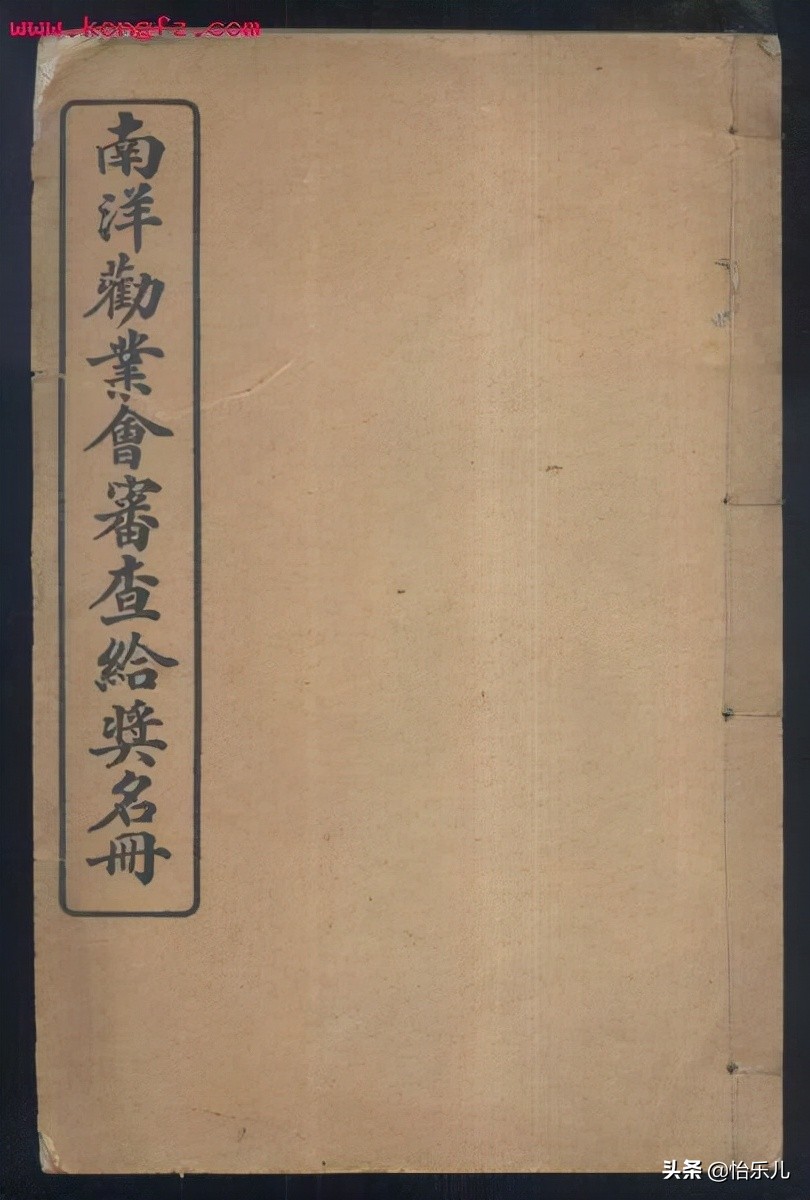 www.kongfz.com
南洋勸業會審查給奬名冊
头条 @怡乐儿